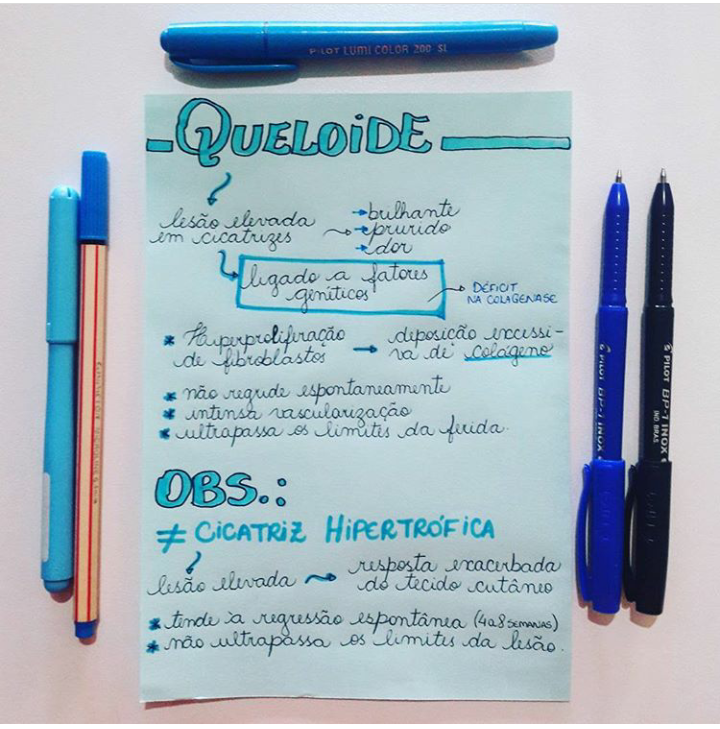 PILOT LUMI COLOR 200 SL
QUELOIDE
lesão elevada
em cicatrizes
→ brilhante
→ prurido
→ dor
ligado a fatores
genéticos
→ DÉFICIT
NA COLAGENASE
* Hiperproliferação
de fibroblastos → deposição excessi-
va de colágeno
* não regride espontaneamente
* intensa vascularização
* ultrapassa os limites da ferida.
OBS.:
≠ CICATRIZ HIPERTRÓFICA
lesão elevada → resposta exacerbada
do tecido cutâneo
* tende à regressão espontânea (4 a 8 SEMANAS)
* não ultrapassa os limites da lesão.
PILOT BP-1 INOX
PILOT BP-1 INOX
IND. BRAS.